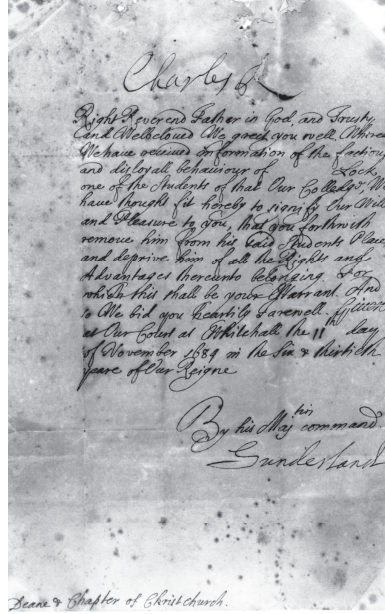 Charles R
Right Reverend Father in God, and Trusty
and Welbeloved We greet you well. Whereas
We have received Information of the factious
and disloyall behaviour of Lock,
one of the Students of that Our Colledge, We
have thought fit hereby to signify Our Will
and Pleasure to you, that you forthwith
remove him from his said Students Place
and deprive him of all the Rights and
Advantages thereunto belonging. For
which this shall be your Warrant. And
so We bid you heartily Farewell. Given
at Our Court at Whitehall the 11th day
of November 1684 in the Six & thirtieth
yeare of Our Reigne
By his Maj ties command
Sunderland
Deane & Chapter of Christchurch.